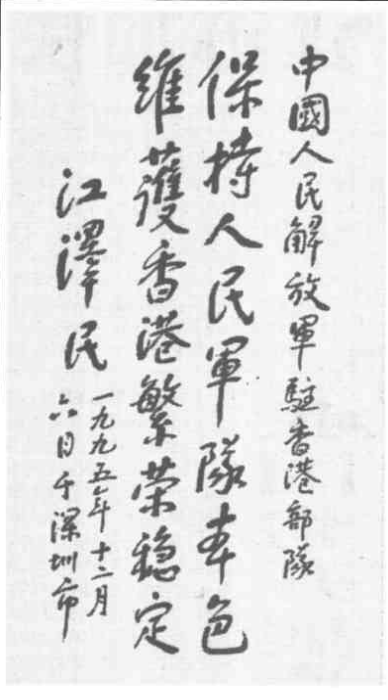 中國人民解放軍駐香港部隊
保持人民軍隊本色
維護香港繁荣稳定
江澤民
一九九五年十二月
六日于深圳市